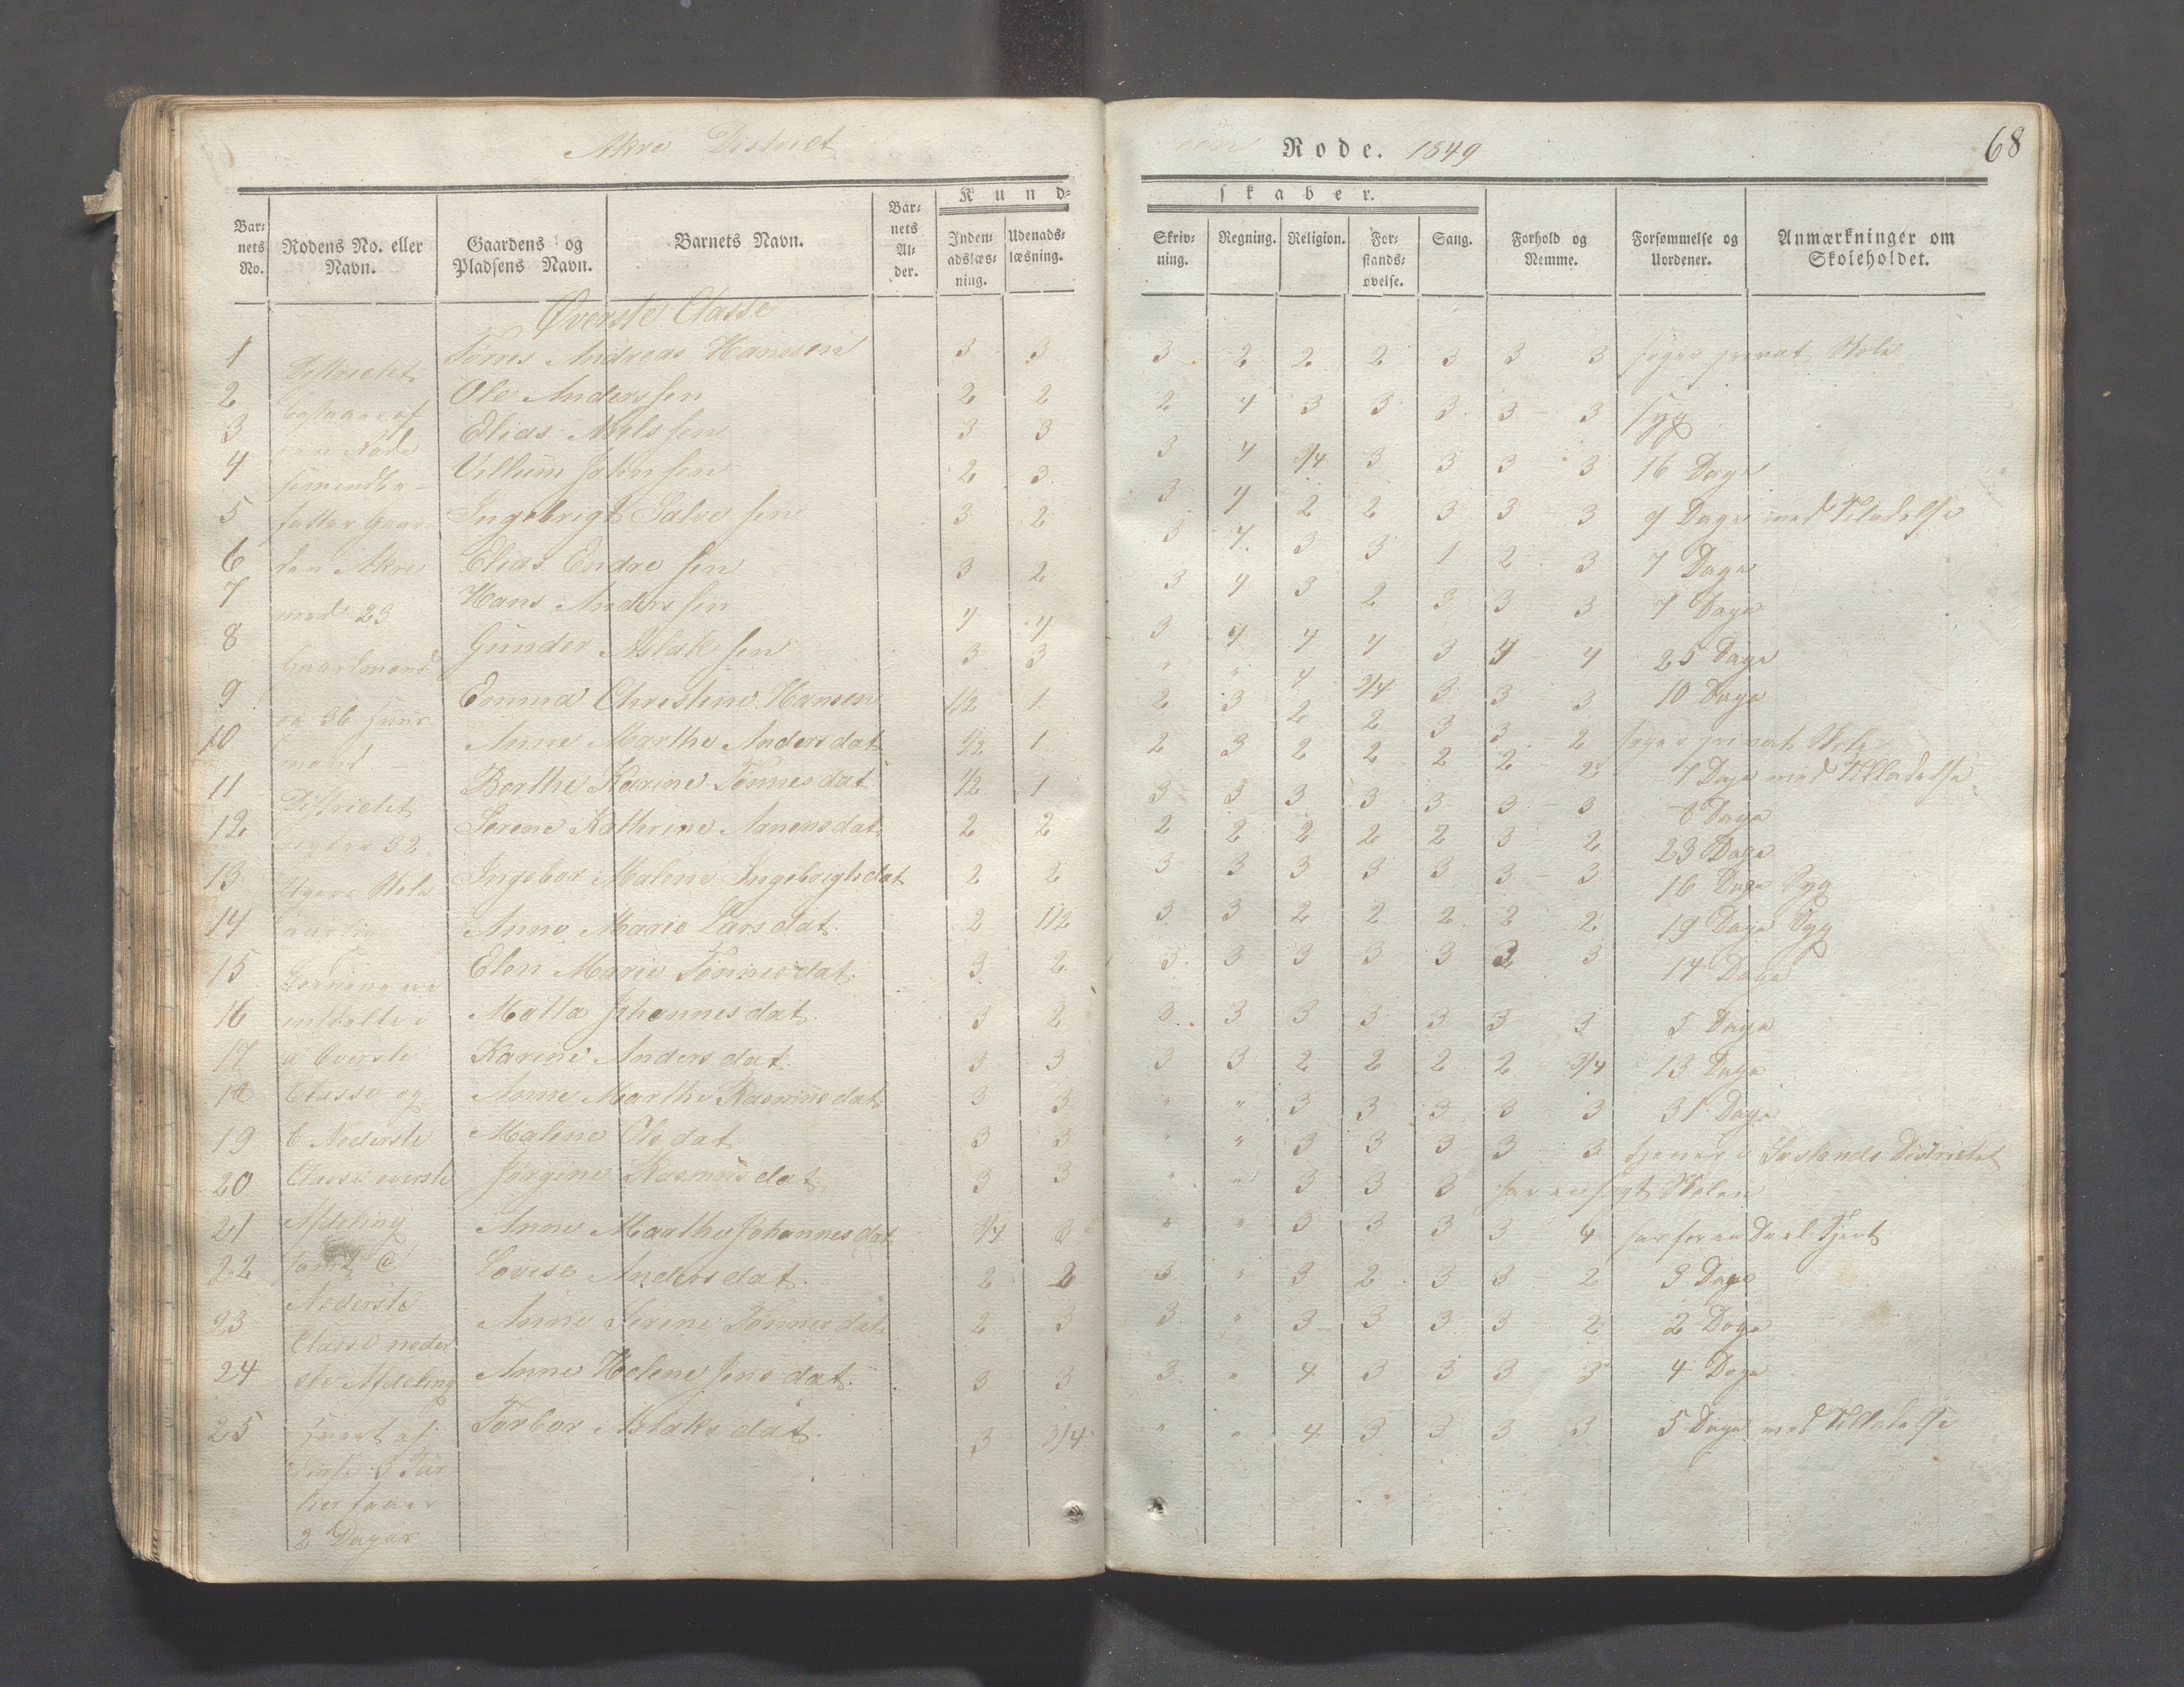 Akre District
een Rode. 1849
68
Kund-
skaber.
Barnets No.
Rodens No. eller Navn.
Gaardens og Pladsens Navn.
Barnets Navn.
Barnets Alder.
Indenadslæsning.
Udenadslæsning.
Skrivning.
Regning.
Religion.
Forstandsøvelse.
Sang.
Forhold og Nemme.
Forsømmelse og Uordener.
Anmærkninger om Skoleholdet.
Øverste Classe
1 Tørres Andreas Hanssen 3 3 3 2 2 2 3 3 - 3 søger privat Skole
2 Ole Anderssen 2 2 2 4 3 3 3 3 - 3 Syg
3 Elias Nielssen 3 3 3 4 3/4 3 3 3 - 3 16 Dage
4 Villum Johnsen 2 3 3 4 2 2 3 3 - 3 9 Dage med Tiladelse
5 Ingebrigt Salvesen 3 2 3 4 3 3 1 2 - 3 7 Dage
6 Elias Endresen 3 2 3 4 3 2 3 3 3 7 Dage
7 Hans Anderssen 4 4 3 4 4 4 3 4 - 4 25 Dage
8 Gunder Aslaksen 3 3 " " 4 3/4 3 3 - 3 10 Dage
9 Emma Christine Hansen 1/2 1 2 3 2 2 3 3 - 2 søger privat Skole
10 Anne Marthe Andersdat. 1/2 1 2 3 2 2 2 2 - 2 7 Dage med Tilladelse
11 Berthe Karine Tønnesdat. 1/2 1 3 3 3 3 3 3 - 3 8 Dage
12 Serene Kathrine Aanensdat. 2 2 2 2 2 2 2 3 - 2 23 Dage
13 Ingebor Malene Ingebrigtsdat 2 2 3 3 3 3 3 3 - 3 16 Dage Syg
14 Anne Marie Larsdat. 2 1/2 3 3 2 2 2 2 - 2 19 Dage Syg
15 Elen Marie Tønnesdat. 3 2 3 3 3 3 3 3 - 3 14 Dage
16 Matla Johannesdat. 3 2 3 3 3 3 3 3 3 5 Dage
17 Karine Andersdat. 3 3 3 3 2 2 2 2 - 3/4 13 Dage
18 Anne Marthe Rasmusdat. 3 3 " " 3 3 3 3 - 3 31 Dage
19 Malene Olsdat. 3 3 " " 3 3 3 3 - 3 tjener i Districtet
20 Jørgine Rasmusdat. 3 3 " " 3 3 3 har ei søgt Skolen
21 Anne Marthe Johannesdat. 3/4 3 " " 3 3 3 3 - 4 har for en Deel Tjent
22 Lovise Andersdat. 2 2 3 " 3 2 3 3 2 3 Dage
23 Anne Serine Tønnesdat. 2 3 3 " 3 3 3 3 - 2 2 Dage
24 Anne Helene Jensdat. 3 3 3 " 4 3 3 3 - 3 4 Dage
25 Torbor Aslaksdat. 3 3/4 " " 4 3 3 3 3 5 Dage med Tilladelse
Districtet
bestaaer af
een Rode
som indbe-
fatter Gaar-
den Akre
med 23
Gaardmænd
og 36 Huus-
mænd
Districtet
nyder 32
Ugers Skole
aarlig
Børnene ere
inddelte i
a Øverste
Classe og
b Nederste
Classe øverste
Afdeling
samt C
Nederste
Classe neder-
ste Afdeling
hvert af
disse 3 Par-
tier faaer
2 Dager